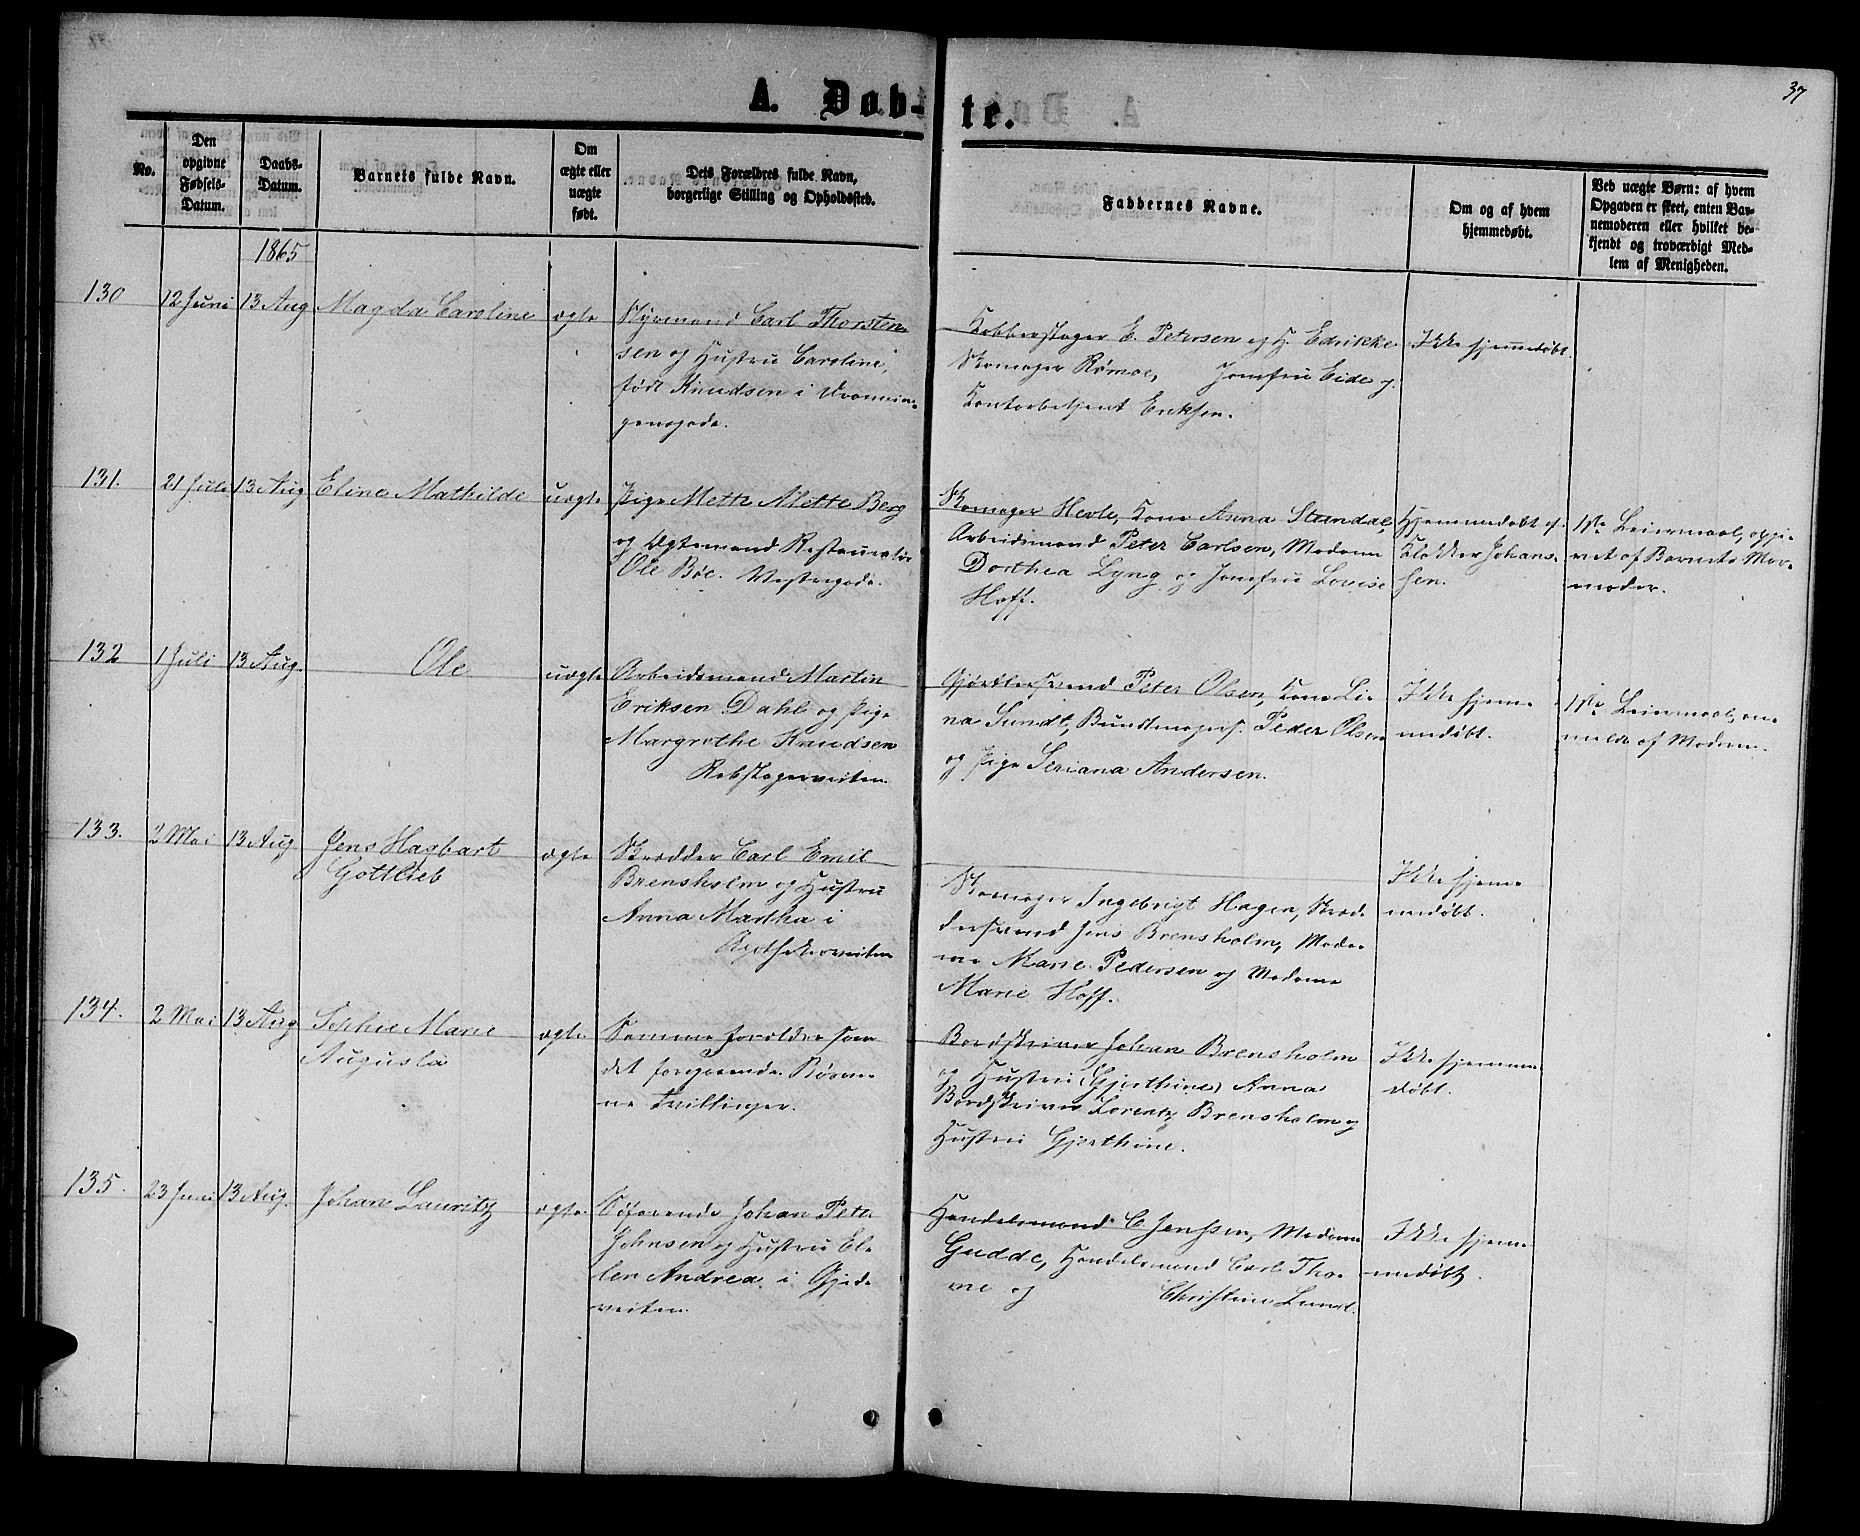 37
A. Døb-te.
No.
Den opgivne Fødsels-Datum.
Daabs-Datum.
Barnets fulde Navn.
Om ægte eller uægte født.
Dets Forældres fulde Navn, borgerlige Stilling og Opholdssted.
Faddernes Navne.
Om og af hvem hjemmedøbt.
Ved uægte Børn: af hvem Opgaven er skeet, enten Barnemoderen eller hvilket bekjendt og troværdigt Medlem af Menigheden.
1865
130
12 Juni
13 Aug
Magda Caroline
ægte
Styrmand Carl Thorsten-
sen og Hustru Caroline,
født Knudsen i Dronnin-
gensgade.
Kobberslager E. Petersen og H. Edrikke
Skomager Rømoe, Jomfru Eide og
Kontorbetjent Eriksen.
Ikke hjemmedøbt.
131.
21 Juli
13 Aug
Eline Mathilde
uægte
Pige Mette Alette Berg
og Ægtemand Restauratør
Ole Böe. Vestregade.
Skomager Hevle, Kone Anna Strandaa,
Arbeidsmand Peter Carlsen, Madame
Dorthea Lyng og Jomfru Lovise
Hoff.
Hjemmedøbt af
Klokker Johans-
sen.
1ste Leiermaal, opgi-
vet af Barnets Mor-
moder.
132
1 Juli
13 Aug.
Ole
uægte
Arbeidsmand Martin
Eriksen Dahl og Pige
Margrethe Knudsen
Rebslagerveiten.
Gjørtlersvend Peter Olsen, Kone Li-
na Sundt, Buntmagers. Peder Olsen
og Pige Seriana Andersen.
Ikke hjem-
medøbt.
1ste Leiermaal, an-
meldt af Moderen.
133.
2 Mai
13 Aug
Jens Hagbart
Gottlieb
ægte
Skrædder Carl Emil
Brensholm og Hustru
Anna Martha i
Apothekerveiten
Skomager Ingebrigt Hagen, Skræd-
dersvend Jens Brensholm, Mada-
me Marie Pedersen og Madame
Marie Hoff.
Ikke hjem-
medøbt.
134.
2 Mai
13 Aug
Sophie Marie
Augusta
ægte
Samme Forældre som
det foregaaende. Børne-
ne Tvillinger.
Bordskriver Johan Brensholm
og Hustru (Gjerthine) Anna
Bordskriver Lorentz Brensholm og
Hustru Gjerthine.
Ikke hjemme-
døbt.
135.
23 Juni
13 Aug.
Johan Lauritz
ægte
Søfarende Johan Peter
Johnsen og Hustru El-
len Andrea i Gjed-
veiten.
Handelsmand C Jenssen, Madame
Gudde, Handelsmand Carl Tho-
ne og Christine Lund.
Ikke hjem-
medøbt.